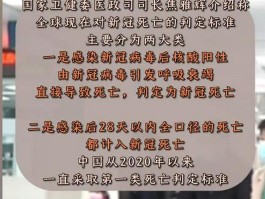 国家卫健委医政司司长焦雅辉介绍称
全球现在对新冠死亡的判定标准
主要分为两大类
一是感染新冠病毒后核酸阳性
由新冠病毒引发呼吸衰竭
直接导致死亡，判定为新冠死亡
二是感染后28天以内全口径的死亡
都计入新冠死亡
中国从2020年以来
一直采取第一类死亡判定标准